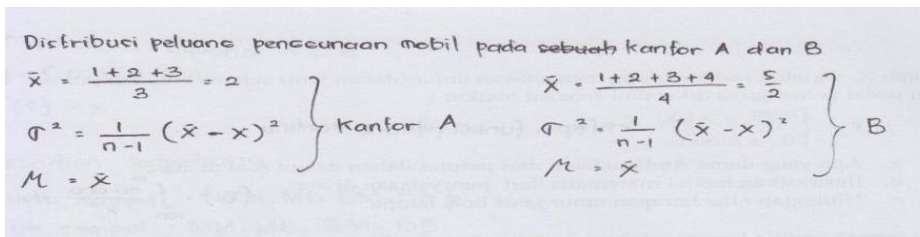 Distribusi peluang penggunaan mobil pada sebuah kantor A dan B
x̄ = (1+2+3)/3 = 2
σ² = 1/(n-1) (x̄ - x)²
μ = x̄
} Kantor A
x̄ = (1+2+3+4)/4 = 5/2
σ² = 1/(n-1) (x̄ - x)²
μ = x̄
} B